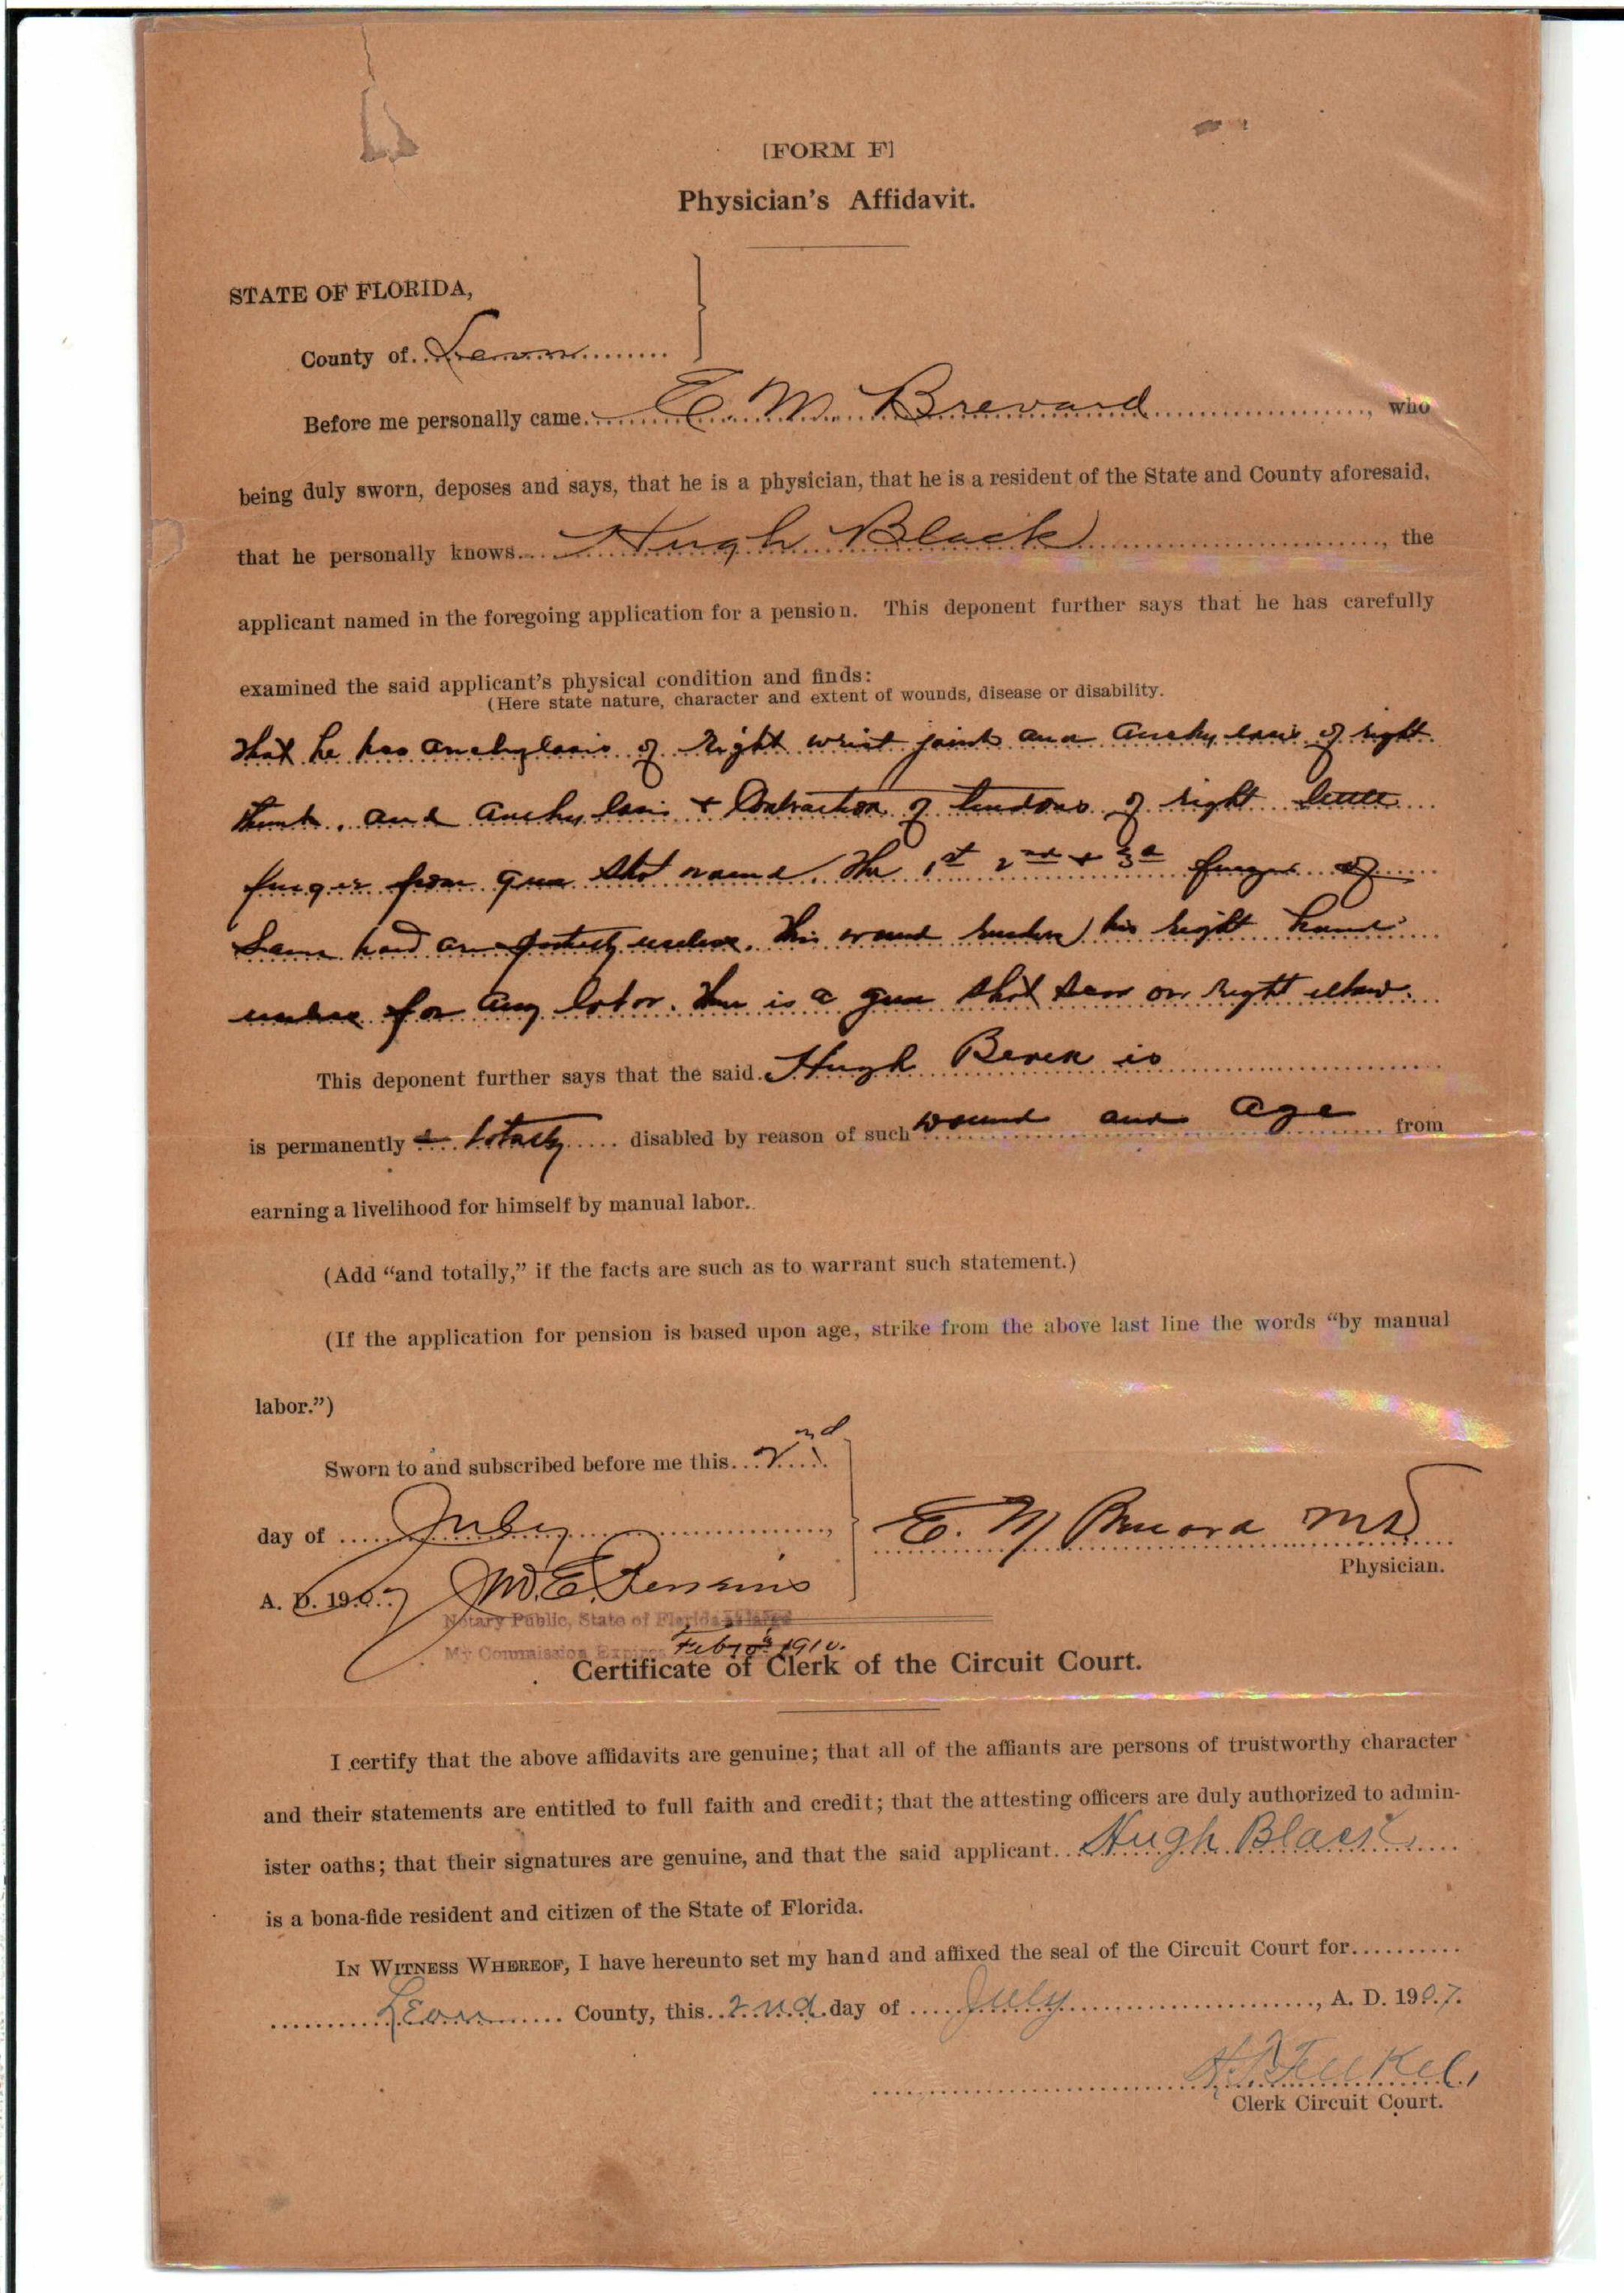 [FORM F]
Physician's Affidavit.
STATE OF FLORIDA,
County of Leon
Before me personally came E. M. Brevard, who
being duly sworn, deposes and says, that he is a physician, that he is a resident of the State and County aforesaid,
that he personally knows Hugh Black, the
applicant named in the foregoing application for a pension. This deponent further says that he has carefully
examined the said applicant's physical condition and finds:
(Here state nature, character and extent of wounds, disease or disability.
that he has anchylosis of right wrist joint and anchylosis of right
thumb. and anchylosis + Contraction of tendons of right little
finger from gun shot wound. The 1st 2nd + 3d fingers of
same hand are useless. This wound renders his right hand
useless for any labor. There is a gun shot scar on right elbow.
This deponent further says that the said Hugh is
is permanently & totally disabled by reason of such wound and age from
earning a livelihood for himself by manual labor.
(Add "and totally," if the facts are such as to warrant such statement.)
(If the application for pension is based upon age, strike from the above last line the words "by manual
labor.")
Sworn to and subscribed before me this 2nd
day of July,
E. M Brevard MD
Physician.
A. D. 1907
Notary Public, State of Florida at large
My Commission Expires Feby 1910.
Certificate of Clerk of the Circuit Court.
I certify that the above affidavits are genuine; that all of the affiants are persons of trustworthy character
and their statements are entitled to full faith and credit; that the attesting officers are duly authorized to admin-
ister oaths; that their signatures are genuine, and that the said applicant Hugh Black
is a bona-fide resident and citizen of the State of Florida.
IN WITNESS WHEREOF, I have hereunto set my hand and affixed the seal of the Circuit Court for
Leon County, this 2nd day of July, A. D. 1907.
Clerk Circuit Court.